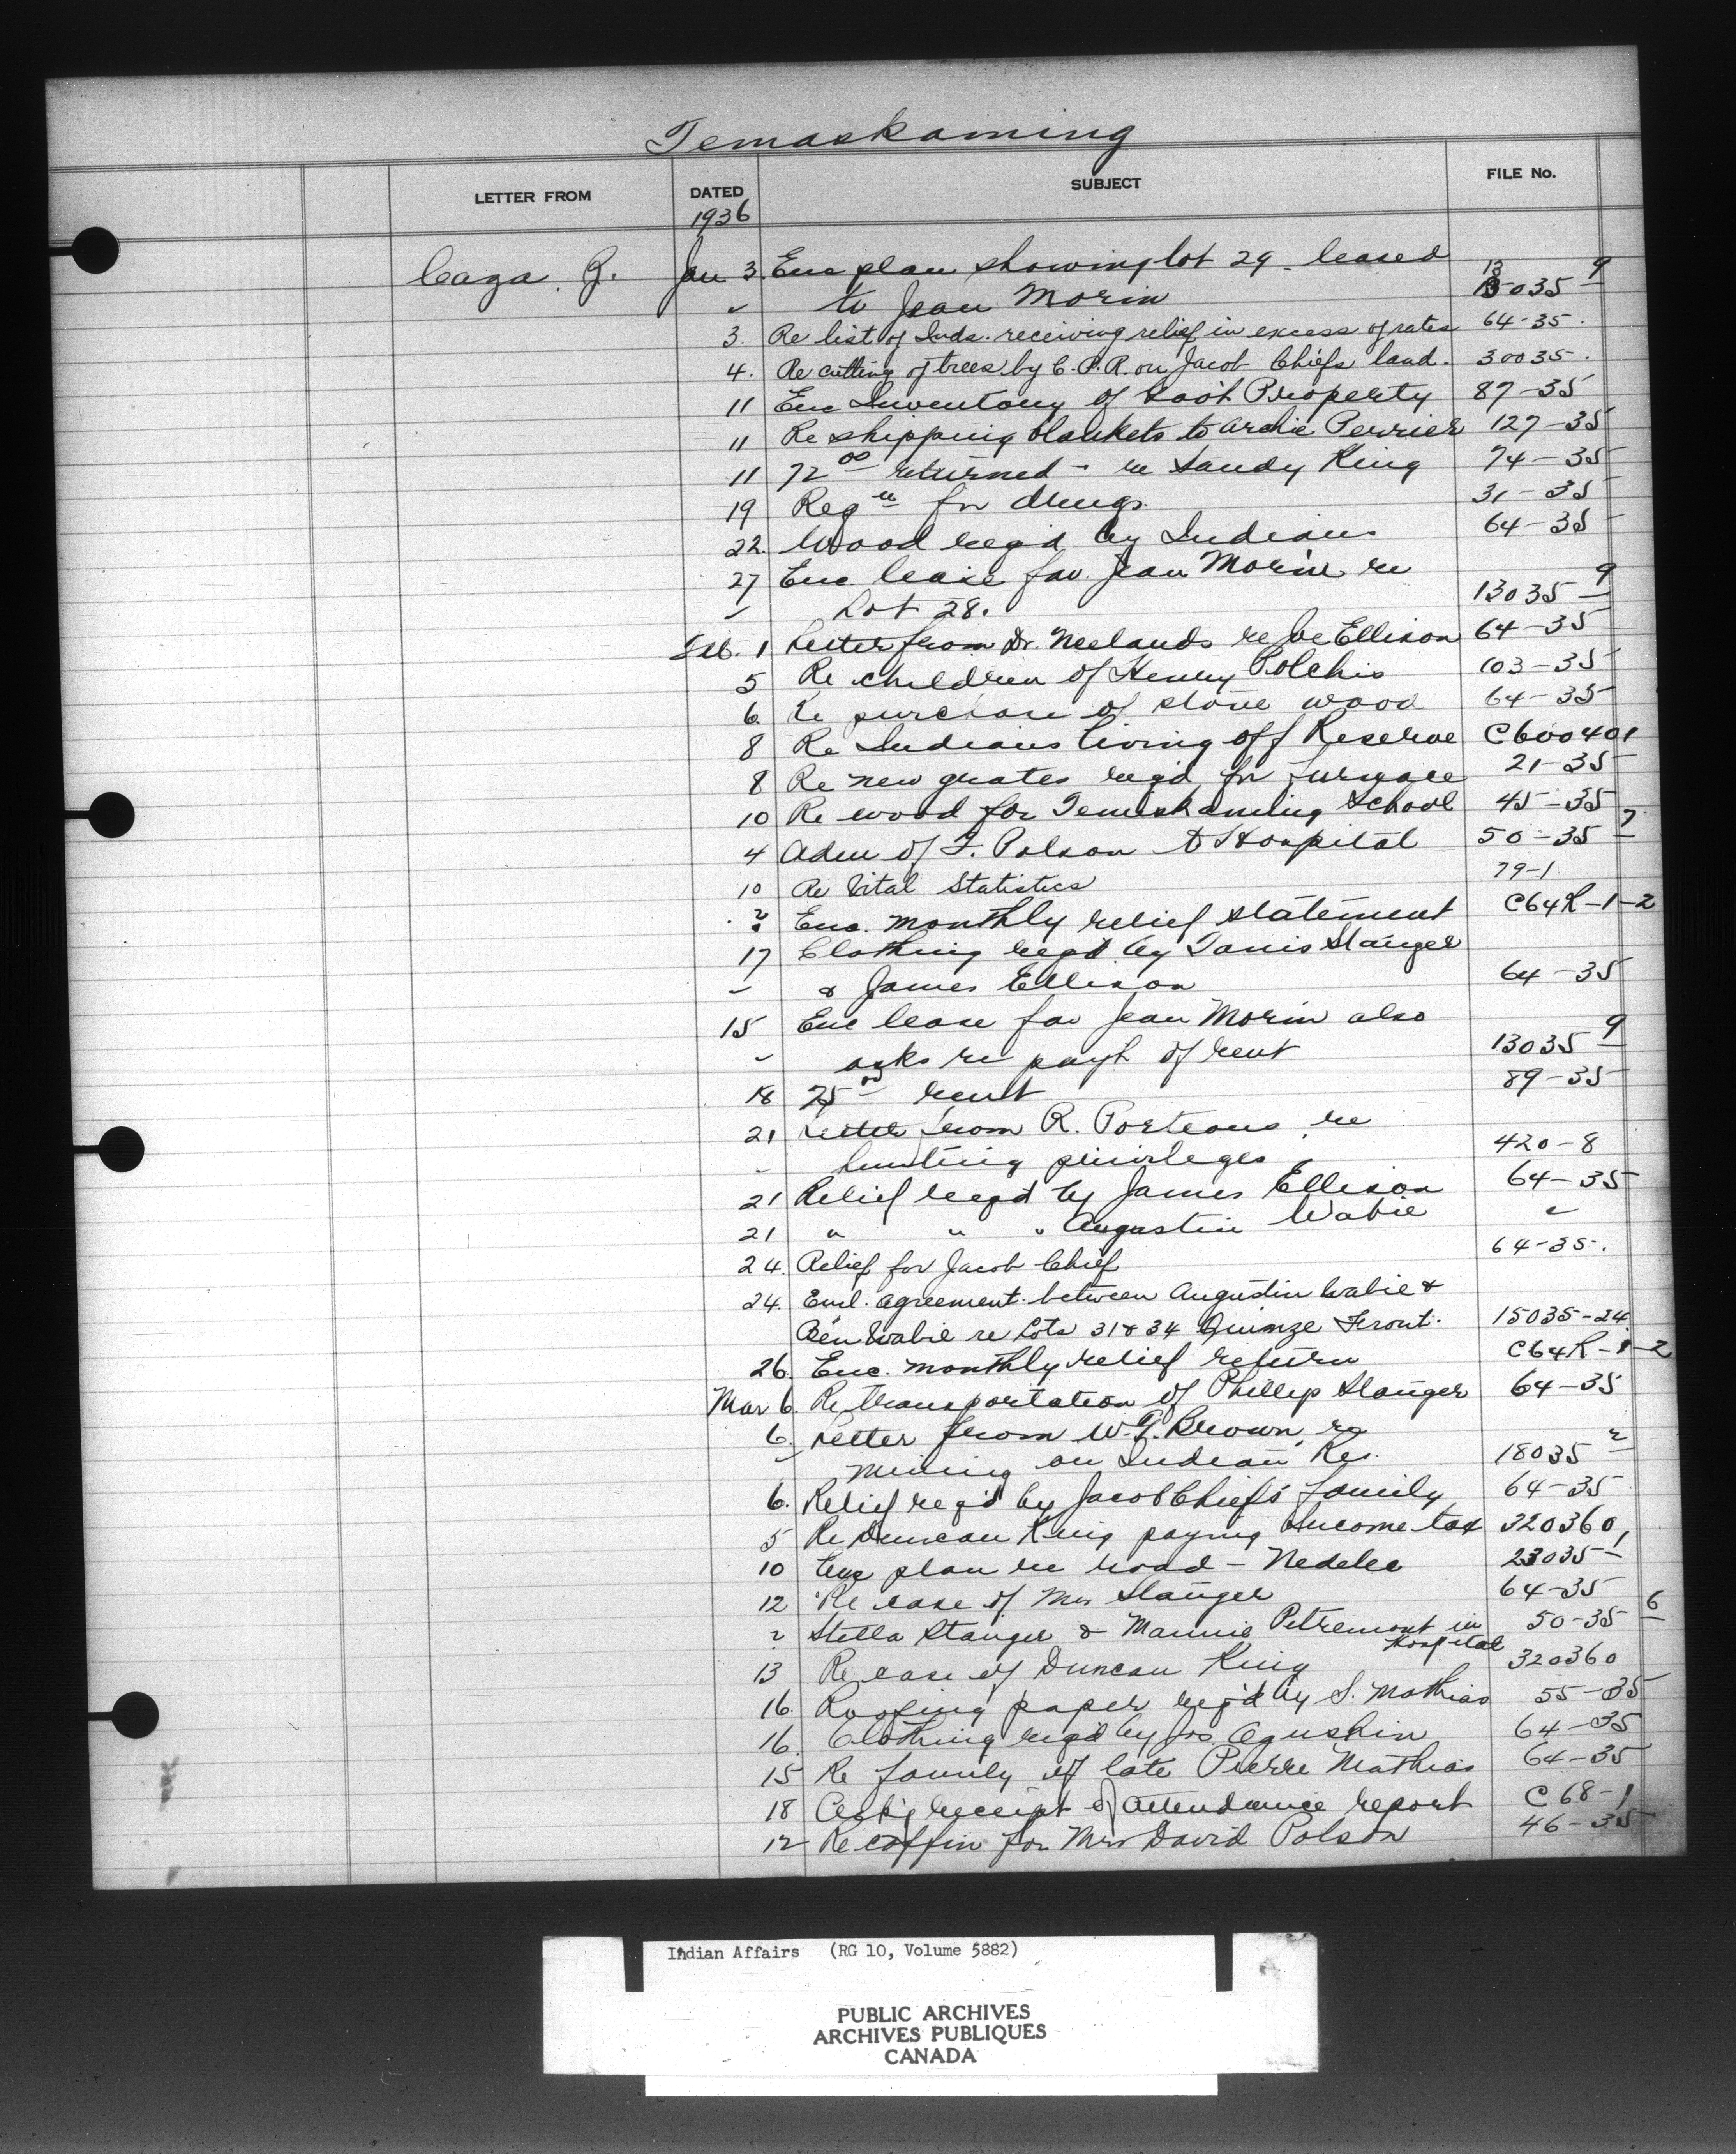 Temaskaming
LETTER FROM DATED SUBJECT FILE No.
1936
Caza, Z. Jan 3. Enc plan showing lot 29 - leased
" to Jean Morin 13035-9
3. Re list of Inds. receiving relief in excess of rates 64-35.
4. Re cutting of trees by C.P.R. on Jacob Chiefs land. 30035.
11 Enc Inventory of Govt Property 87-35
11 Re shipping blankets to Archie Perrier 127-35
11 72 00 returned - re Sandy King 74-35
19 Reqn for drugs 31-35
22. Wood reqd by Indians 64-35
27 Enc. lease fav. Jean Morin re
" Lot 28. 13035-9
Feb. 1 Letter from Dr. Neelands re Joe Ellison 64-35
5 Re children of Henry Polchis 103-35
6 Re purchase of stove wood 64-35
8 Re Indians living off Reserve C600401
8 Re new grates reqd for furnace 21-35
10 Re wood for Temiskaming School 45-35
4 Adm of F. Polson to Hospital 50-35-7
10 Re Vital Statistics 79-1
? Enc. monthly relief statement C64R-1-2
17 Clothing reqd by Tanis Stanger
" & James Ellison 64-35
15 Enc lease fav Jean Morin also
" asks re payt of rent 13035-9
18 25 00 rent 89-35
21 Letter from R. Porteous re
" hunting privileges 420-8
21 Relief reqd by James Ellison 64-35
21 " " " Augustin Wabie "
24. Relief for Jacob Chief 64-35.
24. Encl. agreement between Augustin Wabie &
Ben Wabie re Lots 31 & 34 Quinze Front. 15035-24
26 Enc. monthly relief return C64R-1-2
Mar 6. Re transportation of Phillip Stanger 64-35
6. Letter from W.G. Brown re
" mining on Indian Res. 18035-2
6. Relief reqd by Jacob Chief's family 64-35
5 Re Duncan King paying Income tax 320360
10 Enc plan re road - Nedelec 23035-1
12 Re case of Mrs Stanger 64-35
" Stella Stanger & Mannie Petremont in Hospital 50-35-6
13 Re case of Duncan King 320360
16. Roofing paper reqd by S. Mathias 55-35
16. Clothing reqd by Jos. Agushin 64-35
15 Re family of late Pierre Mathias 64-35
18 Ack'g receipt of attendance report C68-1
12 Re coffin for Mrs David Polson 46-35
Indian Affairs (RG 10, Volume 5882)
PUBLIC ARCHIVES
ARCHIVES PUBLIQUES
CANADA